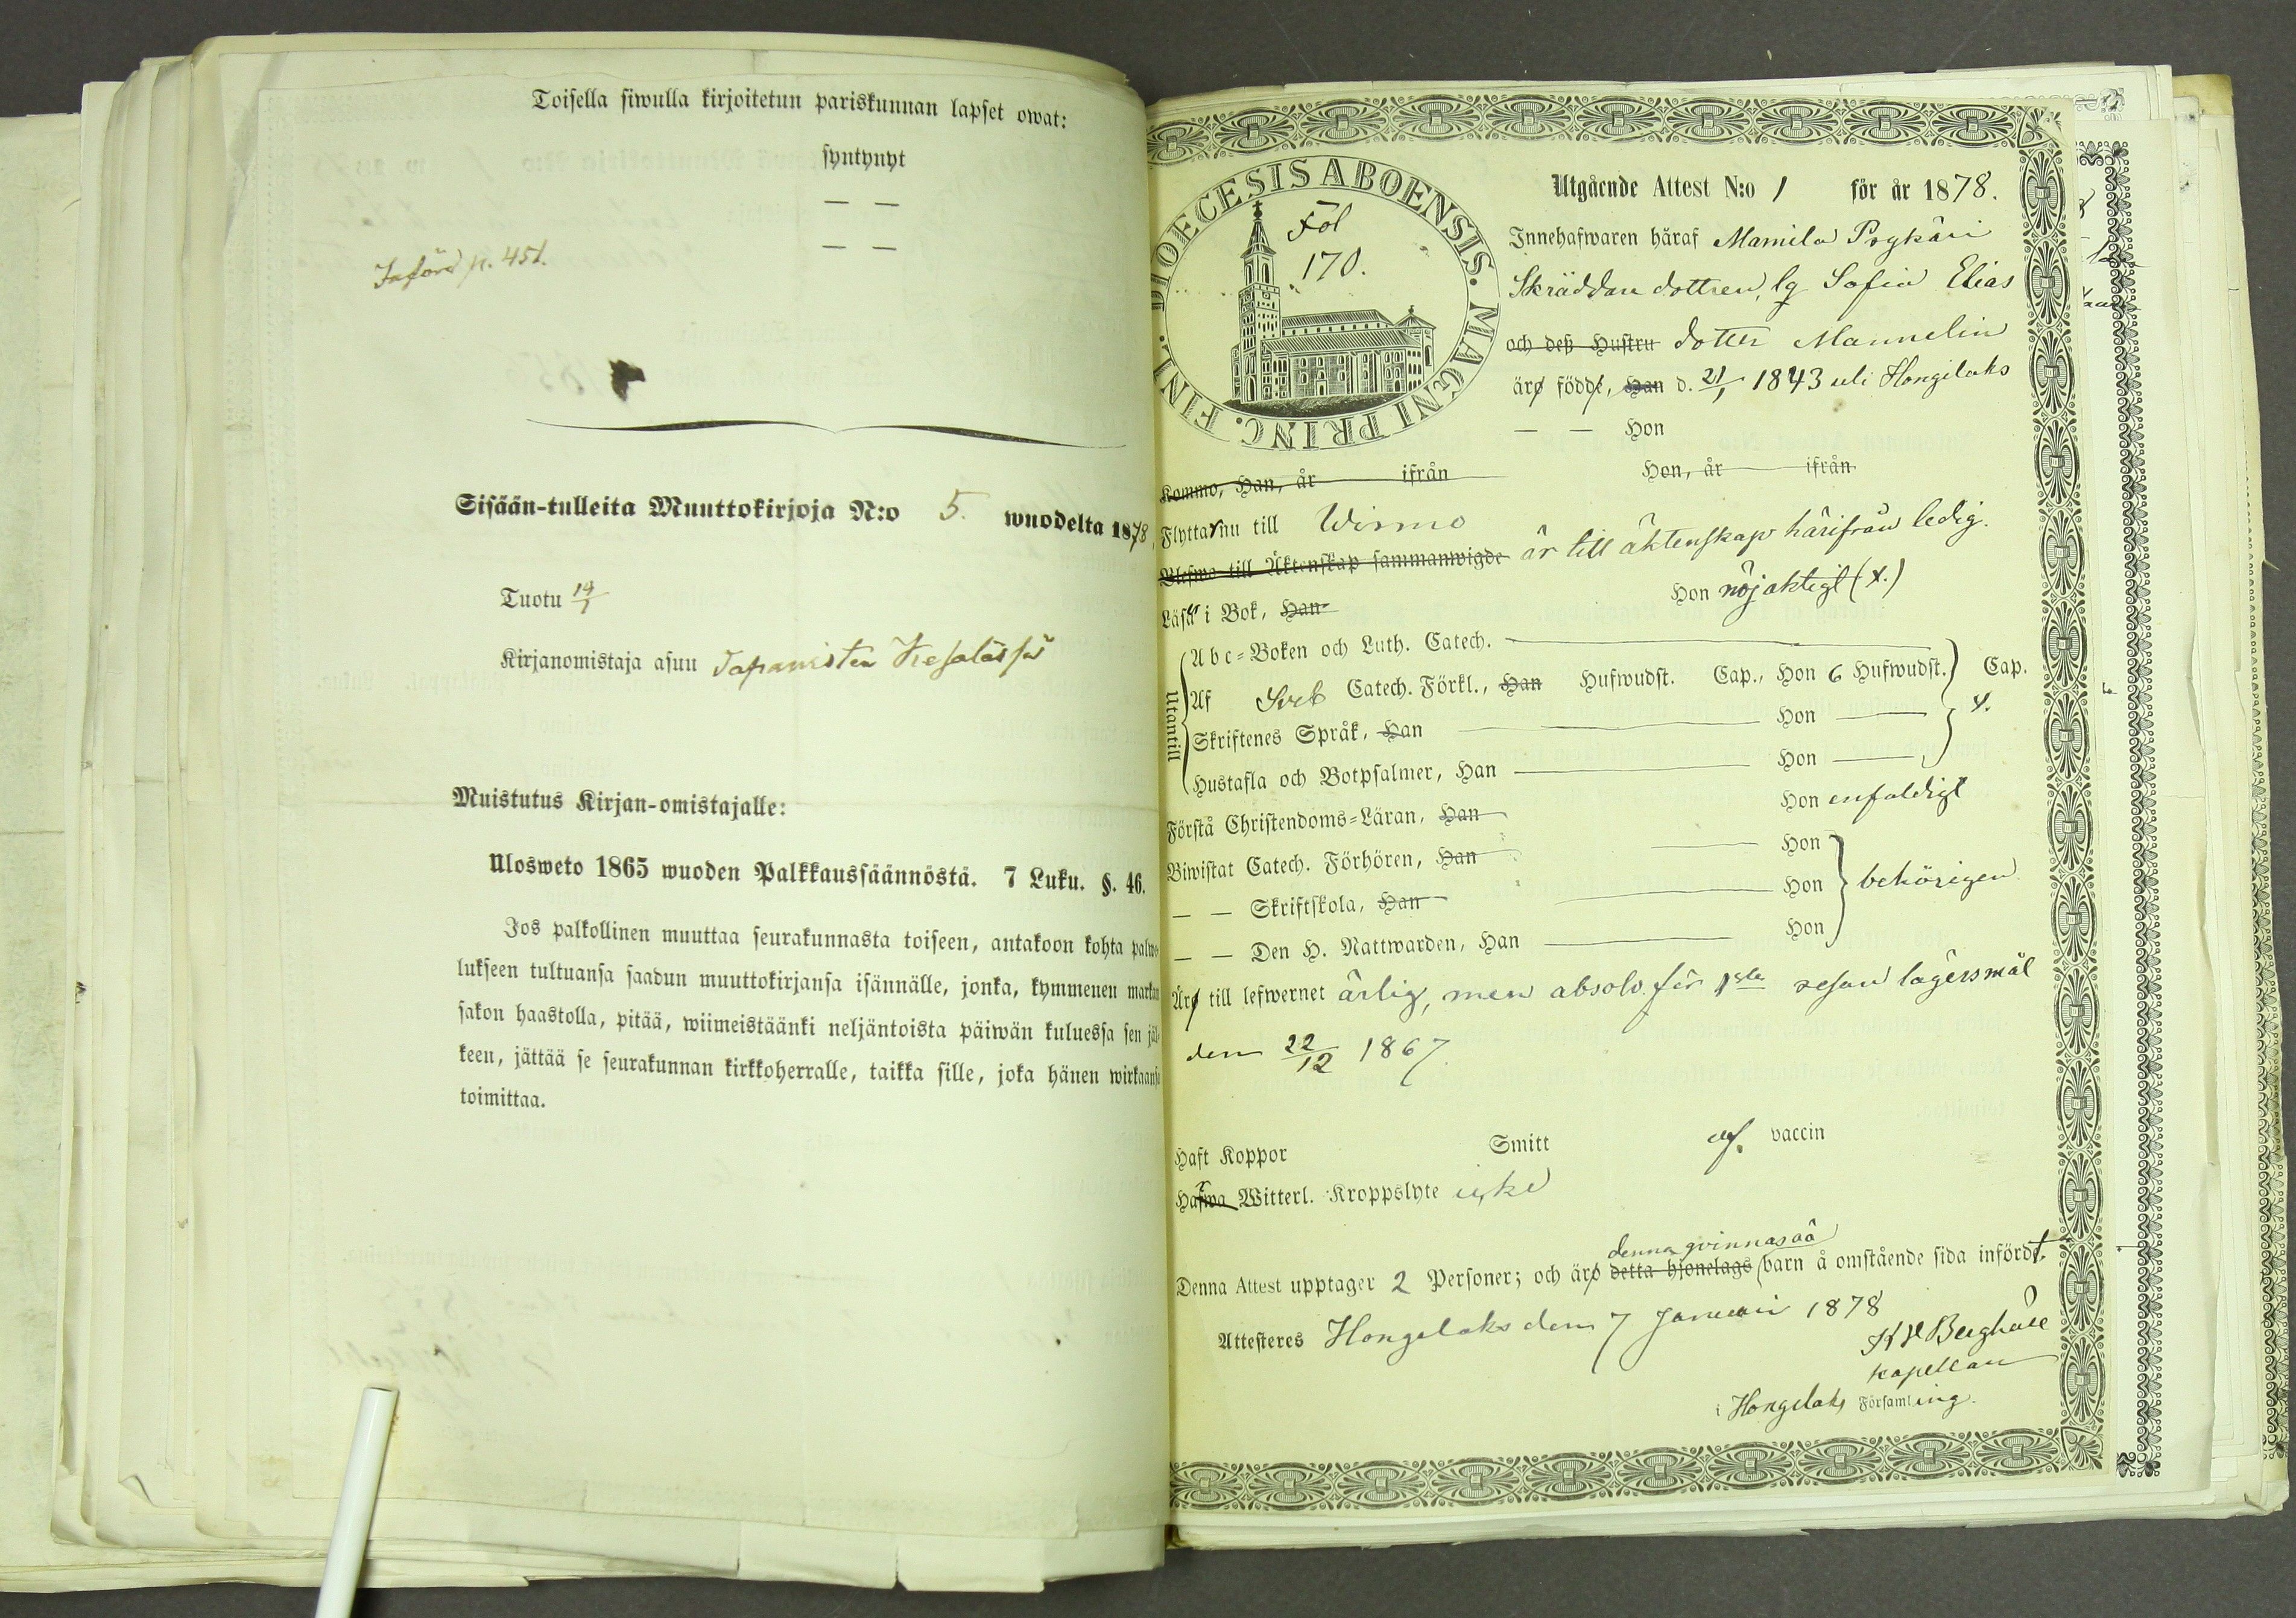 Toisella siwulla kirjoitetun pariskunnan lapset owat:
syntynyt
— —
— —
Införd p. 451.
Sisään-tulleita Muuttokirjoja N:o 5. wuodelta 1878,
Tuotu 14/1
Kirjanomistaja asuu Tapanisten Kesälässä
Muistutus Kirjan-omistajalle:
Ulosweto 1865 wuoden Palkkaussäännöstä. 7 Luku. §. 46.
Jos palkollinen muuttaa seurakunnasta toiseen, antakoon kohta palwe-
lukseen tultuansa saadun muuttokirjansa isännälle, jonka, kymmenen markan
sakon haastolla, pitää, wiimeistäänki neljäntoista päiwän kuluessa sen jäl-
keen, jättää se seurakunnan kirkkoherralle, taikka sille, joka hänen wirkaansa
toimittaa.
DIOECESIS ABOENSIS. MAGNI PRINC. FINL.
Fol
170.
Utgående Attest N:o 1 för år 1878.
Innehafwaren häraf Mamila Prykäri
Skräddare dottren, lg Sofia Elias
och deß Hustru dotter Mannelin
äro född, Han d. 21/1 1843 uti Hongilaks
— — Hon
Kommo, Han, år ifrån Hon, år ifrån
Flyttar nu till Wirmo
Blefwo till Äktenskap sammanwigde är till äktenskap härifrån ledig.
Läser i Bok, Han Hon nöjaktigt (x.)
Utantill
Abc-Boken och Luth. Catech.
Af Sveb Catech. Förkl., Han Hufwudst. Cap., Hon 6 Hufwudst. Cap.
Skriftenes Språk, Han Hon x.
Hustafla och Botpsalmer, Han Hon
Förstå Christendoms-Läran, Han Hon enfaldigt
Biwistat Catech. Förhören, Han Hon
— — Skriftskola, Han Hon behörigen
— — Den H. Nattwarden, Han Hon
Äro till lefwernet ärlig, men absolv. för 1sta resan lägersmål
den 22/12 1867.
Haft Koppor Smitt af. vaccin
Hafwa Witterl. Kroppslyte icke
denna qvinnas oä
Denna Attest upptager 2 Personer; och äro detta hjonelags barn å omstående sida infördt.
Attesteres Hongilaks den 7 Januari 1878
K H Berghäll
kapellan
i Hongilaks Församling.